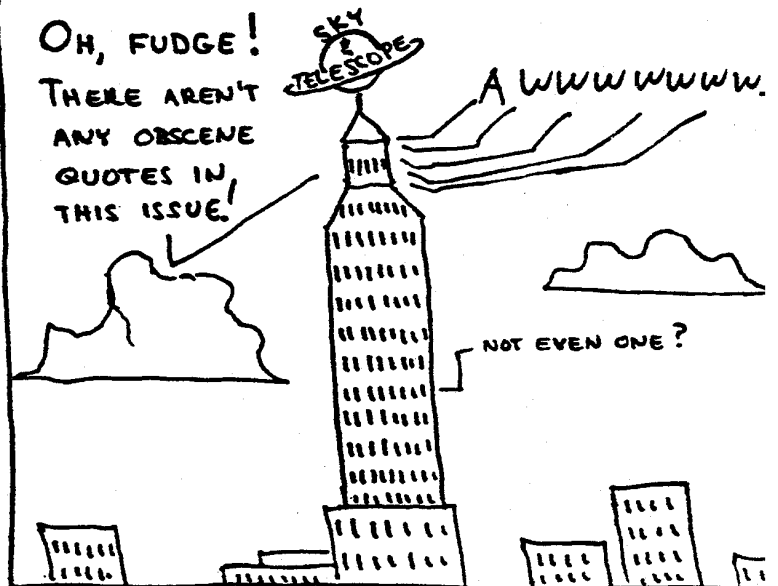 OH, FUDGE!
THERE AREN'T
ANY OBSCENE
QUOTES IN
THIS ISSUE!
SKY
&
TELESCOPE
A WWWWWWW
NOT EVEN ONE?